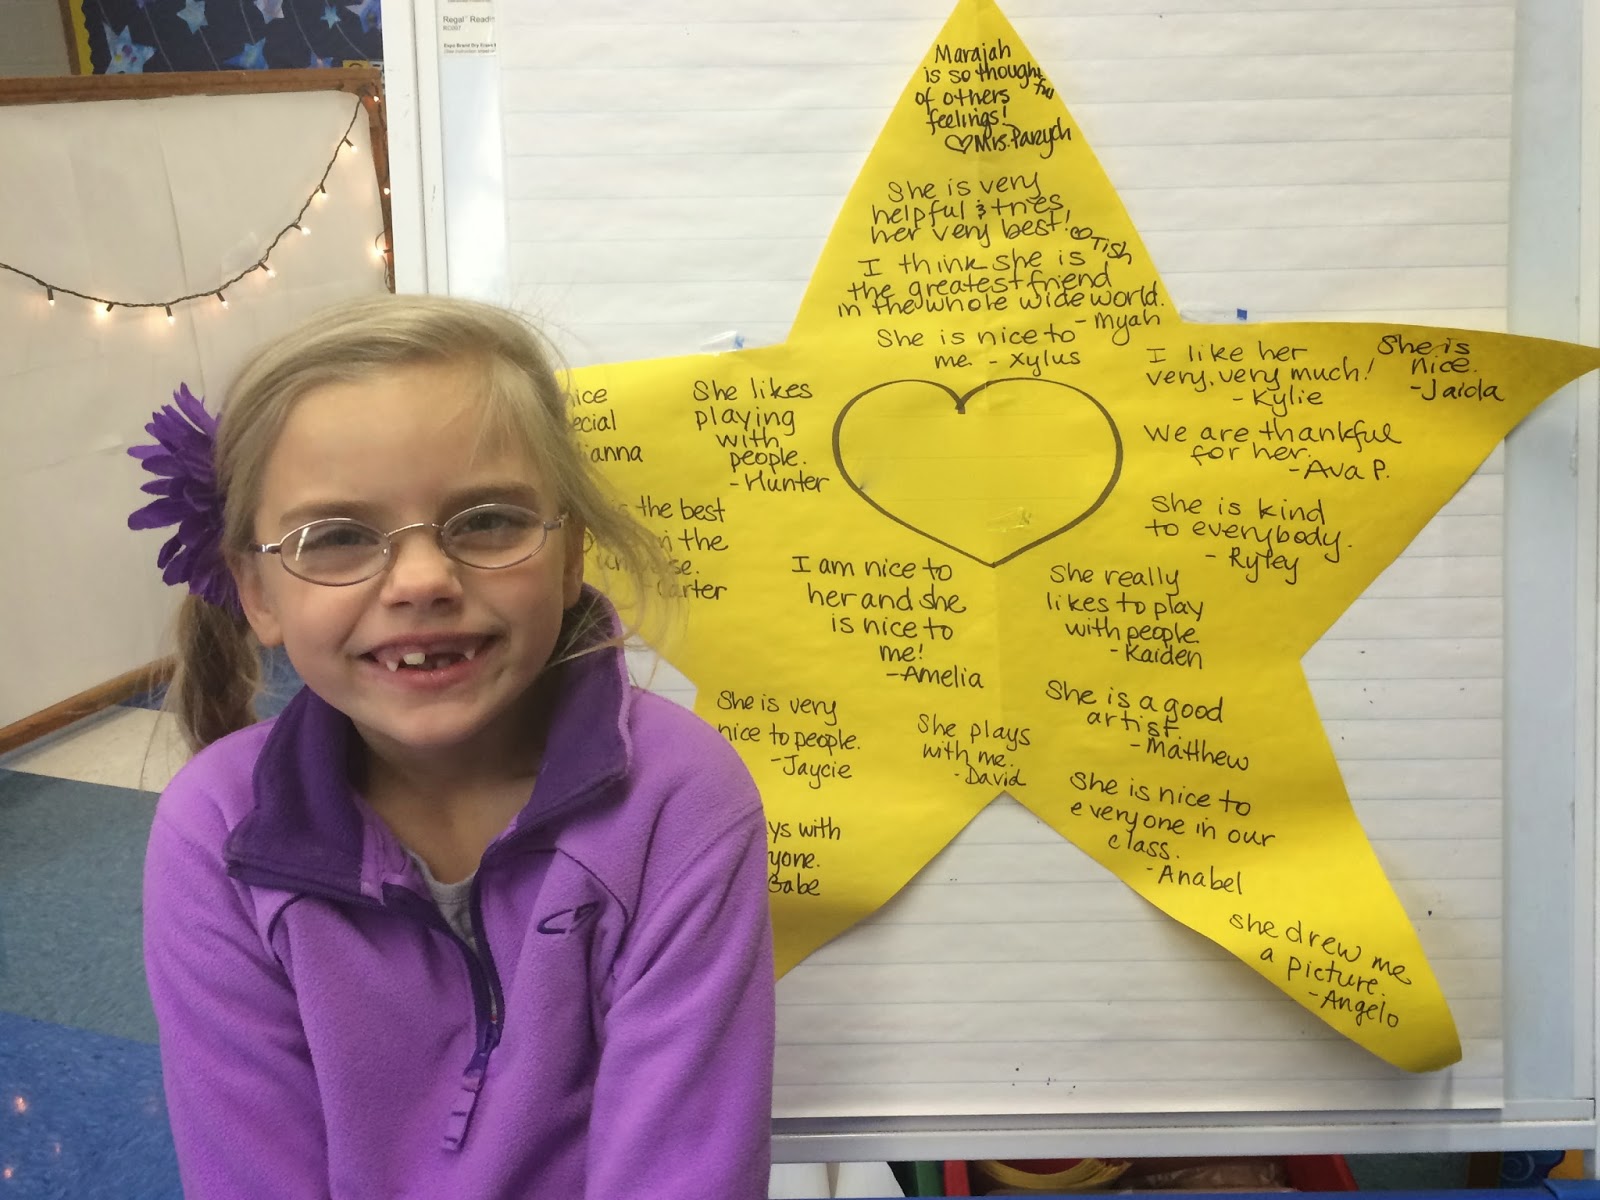 Regal Readi
Marajah
is so thoughtful
of others
feelings!
♡Mrs. Parych
She is very
helpful & tries
her very best!
♡ Tish
I think she is
the greatest friend
in the whole wide world.
- Myah
She is nice to
me. - Xylus
I like her
very, very much!
- Kylie
She is
nice.
- Jaida
We are thankful
for her.
- Ava P.
She is kind
to everybody.
- Ryley
She likes
playing
with
people.
- Hunter
ice
ecial
ianna
the best
in the
universe.
- Carter
I am nice to
her and she
is nice to
me!
- Amelia
She really
likes to play
with people.
- Kaiden
She is very
nice to people.
- Jaycie
She plays
with me.
- David
She is a good
artist.
- Matthew
She is nice to
everyone in our
class.
- Anabel
ys with
yone.
Gabe
she drew me
a picture.
- Angelo